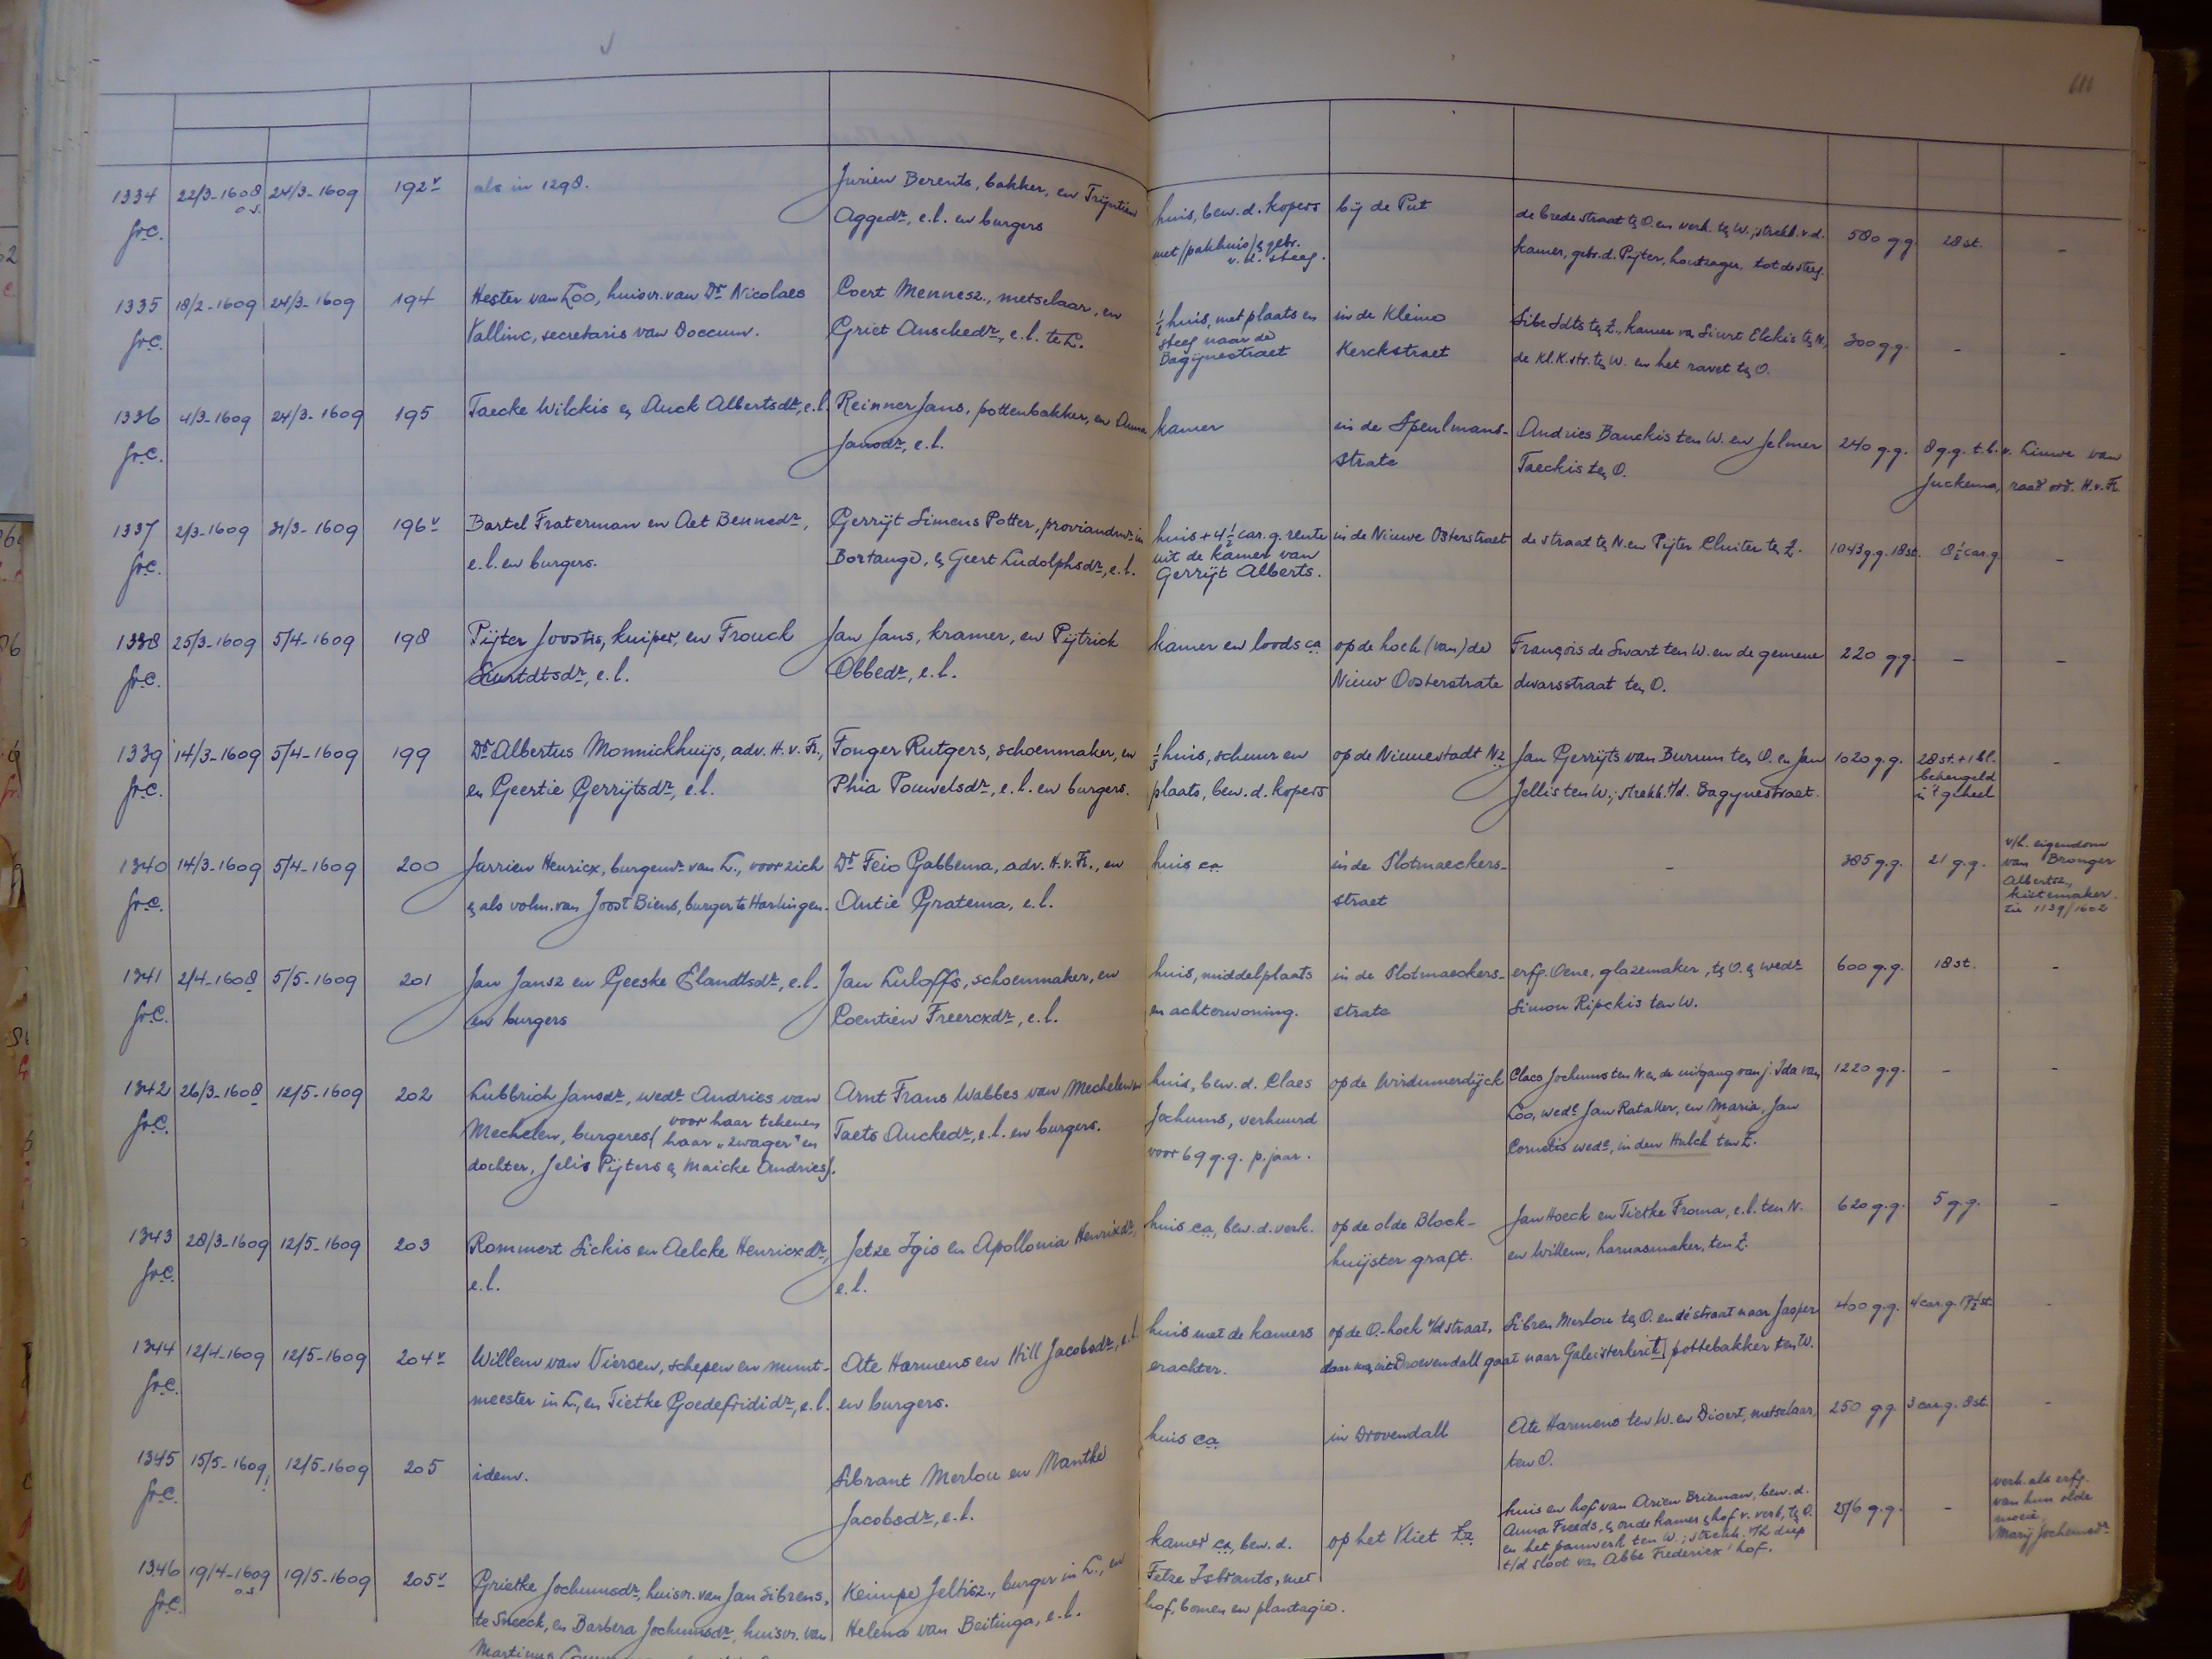 111
1334 22/3-1608 24/3-1609 192v als in 1298. Jurien Berents, bakker, en Trijntien huis, bew. d. kopers bij de Put de brede straat ten O. en verk. ten W.; strekk. v.d. 580 g.g. 28 st. -
fo.c. o.s. Aggedr., e.l. en burgers met (pakhuis) & gebr. kamer, gebr. d. Pijter, houtzager, tot de steeg.
v. d. steeg.
1335 18/2-1609 24/3-1609 194 Hester van Loo, huisvr. van Dr Nicolaes Coert Mennesz., metselaar, en ½ huis, met plaats en in de Kleine Sibe Idts ten Z., kamer van Siurt Elckis ten N., 300 g.g. - -
fo.c. Vallinc, secretaris van Doccum. Griet Anschedr., e.l. te L. steeg naar de Kerckstraet de Kl.K.str. ten W. en het ravet ten O.
Bagijnestraet
1336 4/3-1609 24/3-1609 195 Taecke Wilckis en Auck Albertsdr., e.l. Reinner Jans, pottenbakker, en Anna kamer in de Speulmans- Andries Banckis ten W. en Jelmer 240 g.g. 8 g.g. t.b.v. Lieuwe van
fo.c. Jansdr., e.l. strate Taeckis ten O. Juckema, raad ord. H.v.Fr.
1337 2/3-1609 31/3-1609 196v Bartel Fraterman en Aet Bennedr., Gerrijt Simens Potter, proviandmr. in huis + 4½ car. g. rente in de Nieuwe Osterstraet de straat ten N. en Pijter Cluiter ten Z. 1043 g.g. 18 st. 8½ car. g -
fo.c. e.l. en burgers. Bortange, & Geert Ludolphsdr., e.l. uit de kamer van
Gerrijt Alberts.
1338 25/3-1609 5/4-1609 198 Pijter Joostes, kuiper, en Frouck Jan Jans, kramer, en Pijtrick kamer en loods ca op de hoek (van) de François de Swart ten W. en de gemene 220 g.g. - -
fo.c. Siurtdtsdr., e.l. Obbedr., e.l. Nieuw Oosterstrate dwarsstraat ten O.
1339 14/3-1609 5/4-1609 199 Dr Albertus Monnickhuijs, adv. H. v. Fr., Fonger Rutgers, schoenmaker, en ⅓ huis, schuur en op de Nieuwestadt Nz Jan Gerrijts van Burum ten O. en Jan 1020 g.g. 28 st. + 1 bl. -
fo.c. en Geertie Gerrijtsdr., e.l. Phia Pouwelsdr., e.l. en burgers. plaats, bew. d. kopers Jellis ten W.; strekk. t/d. Bagynestraet. bekengeld
in 't geheel
1340 14/3-1609 5/4-1609 200 Jurrien Henricx, burgemr. van L., voor zich Dr Feio Gabbema, adv. H.v.Fr., en huis ca in de Slotmaeckers- - 385 g.g. 21 g.g. v/h. eigendom
van Bronger
fo.c. & als volm. van Joost Biens, burger te Harlingen. Antie Gratema, e.l. straet Albertsz.,
kistemaker.
zie 1139/1602
1341 2/4-1608 5/5-1609 201 Jan Jansz en Geeske Elandtsdr., e.l. Jan Luloffs, schoenmaker, en huis, middelplaats in de Slotmaeckers- erfg. Oene, glazemaker, ten O. & wedr. 600 g.g. 18 st. -
fo.c. en burgers Coentien Freercxdr., e.l. en achterwoning. strate Simon Ripckis ten W.
1342 26/3-1608 12/5-1609 202 Lubbrich Jansdr., wedr. Andries van Arnt Frans Wabbes van Mechelen en huis, bew. d. Claes op de Wirdumerdijck Claes Jochums ten N. en de uitgang van j. Ida van 1220 g.g. - -
fo.c. Mechelen, burgeres (voor haar tekenen Taets Auckedr., e.l. en burgers. Jochums, verhuurd Loo, wede. Jan Rataller, en Maria, Jan
haar "zwager" en
dochter, Jelis Pijters & Maicke Andries). voor 69 g.g. p. jaar. Cornelis wede., in den Hulck ten Z.
1343 28/3-1609 12/5-1609 203 Rommert Sickis en Aelcke Henricxdr., Jetze Igis en Apollonia Henrixdr., huis ca, bew. d. verk. op de olde Block- Jan Hoeck en Tietke Froma, e.l. ten N. 620 g.g. 5 g.g. -
fo.c. e.l. e.l. huijster graft. en Willem, harnasmaker, ten Z.
1344 12/4-1609 12/5-1609 204v Willem van Viersen, schepen en munt- Ate Harmens en Hill Jacobsdr., e.l. huis met de kamers op de O.-hoek v/d straat, Sibren Merlou ten O. en de straat naar Jasper 400 g.g. 4 car. g. 17½ st. -
fo.c. meester in L., en Tietke Goedefrididr., e.l. en burgers. erachter. daar men uit Drovendall gaat naar Galeisterkerit pottebakker ten W.
1345 15/5-1609 12/5-1609 205 idem. Sibrant Merlou en Nantke huis ca in Drovendall Ate Harmens ten W. en Dioert, metselaar, 250 g.g. 3 car. g. 8 st. -
fo.c. Jacobsdr., e.l. ten O.
1346 19/4-1609 19/5-1609 205v Grietke Jochumsdr., huisvr. van Jan Sibrens, Keimpe Jeltisz., burger in L., en kamer ca, bew. d. op het Vliet Zz huis en hof van Arien Brieman, bew. d. 256 g.g. - verk. als erfg.
fo.c. o.s te Sneeck, en Barbera Jochumsdr., huisvr. van Helena van Beitinga, e.l. Fetze Isbrants, met Anna Freeds, & oude kamer & hof v. verk, ten O. van hun olde
hof, bomen en plantagie. en het pauwerk ten W.; strekk. v/h diep moeie,
t/d sloot van Abbe Fredericx' hof. Marij Jochemsdr.
Martinus